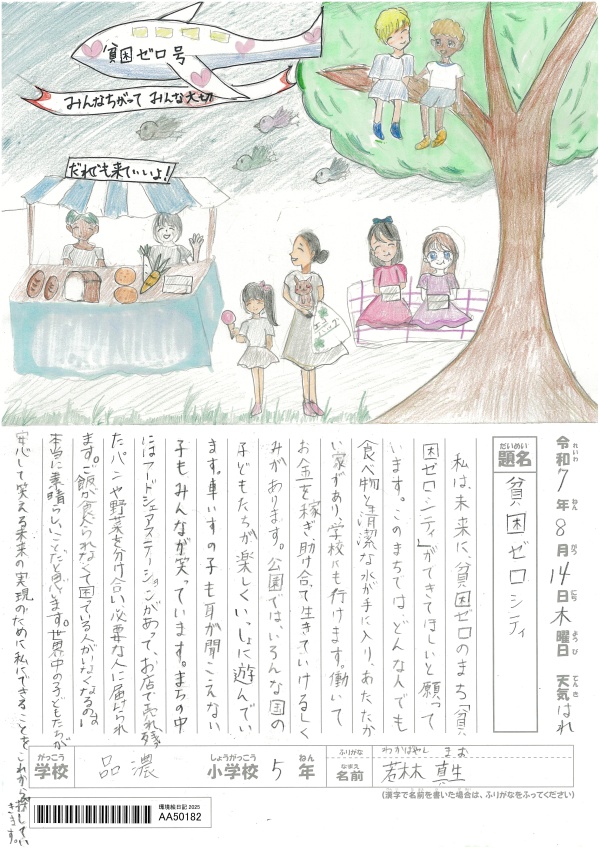 貧困ゼロ号
みんなちがって みんな大切
だれでも来ていいよ!
エコバッグ
令和7年8月14日木曜日 天気 はれ
れいわ ねん がつ にち ようび てんき
だいめい
題名 貧困ゼロシティ
私は、未来に、貧困ゼロのまち「貧
困ゼロシティ」ができてほしいと願って
います。このまちでは、どんな人でも
食べ物と清潔な水が手に入り、あたたか
い家があり、学校にも行けます。働いて
お金を稼ぎ、助け合って生きていけるしく
みがあります。公園では、いろんな国の
子どもたちが楽しくいっしょに遊んでい
ます。車いすの子も耳が聞こえない
子もみんなが笑っています。まちの中
にはフードシェアステーションがあって、お店で売れ残っ
たパンや野菜を分け合い、必要な人に届けられ
ます。ご飯が食べられなくて困っている人がいなくなるのは
本当に素晴らしいことだと思います。世界中の子どもたちが
安心して笑える未来の実現のために私にできることをこれから探してい
きます。
がっこう しょうがっこう ねん
学校 品濃 小学校 5年
ふりがな わかばやし まお
なまえ
名前 若林 真生
(漢字で名前を書いた場合は、ふりがなをふってください)
環境絵日記 2025
AA50182